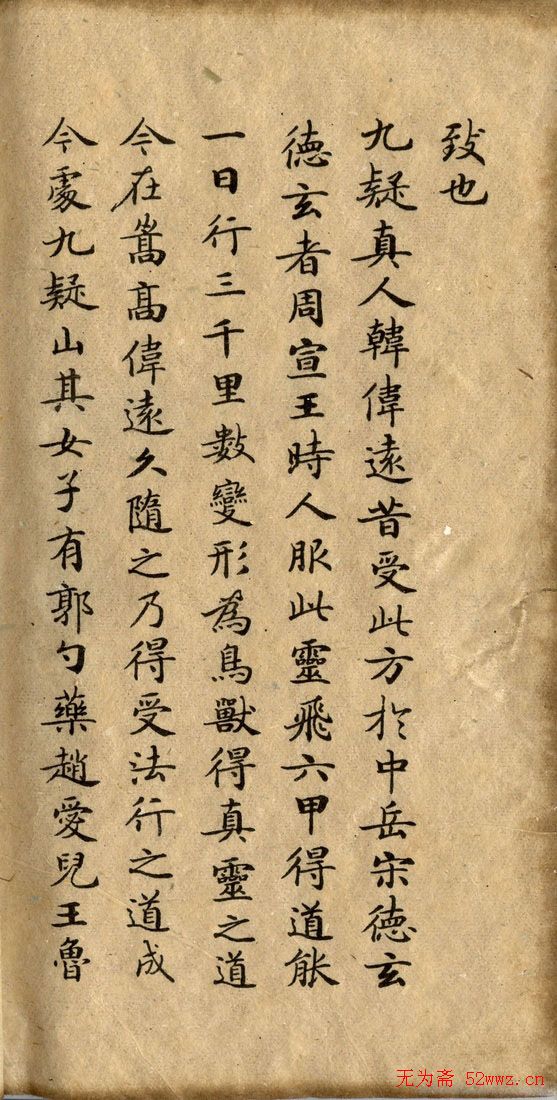 致也
九疑真人韓偉遠昔受此方於中岳宋德玄
德玄者周宣王時人服此靈飛六甲得道能
一日行三千里數變形為鳥獸得真靈之道
今在嵩高偉遠久隨之乃得受法行之道成
今處九疑山其女子有郭勺藥趙愛兒王魯
无为斋 52wwz.cn